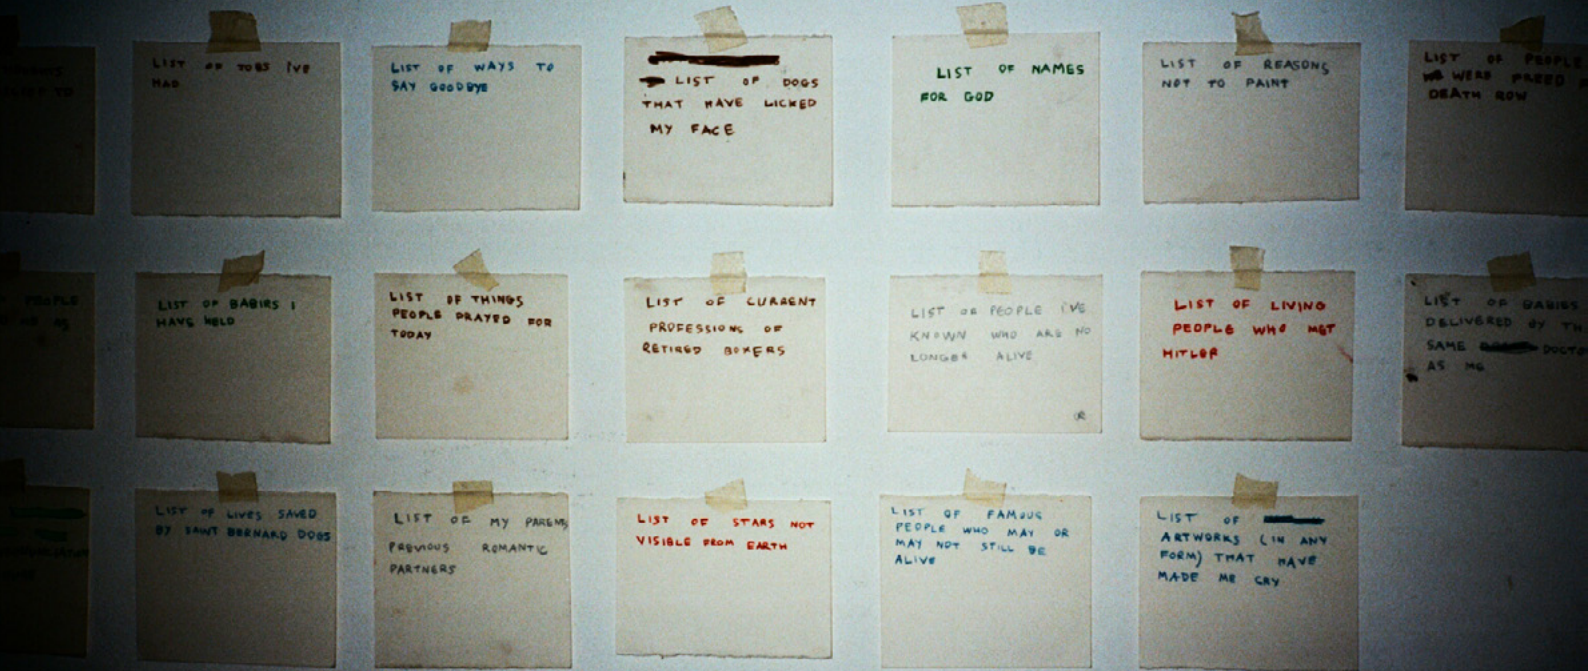 LIST OF JOBS I'VE
HAD
LIST OF WAYS TO
SAY GOODBYE
LIST OF DOGS
THAT HAVE LICKED
MY FACE
LIST OF NAMES
FOR GOD
LIST OF REASONS
NOT TO PAINT
LIST OF PEOPLE
WERE FREED
DEATH ROW
PEOPLE
LIST OF BABIES I
HAVE HELD
LIST OF THINGS
PEOPLE PRAYED FOR
TODAY
LIST OF CURRENT
PROFESSIONS OF
RETIRED BOXERS
LIST OF PEOPLE I'VE
KNOWN WHO ARE NO
LONGER ALIVE
LIST OF LIVING
PEOPLE WHO MET
HITLER
LIST OF BABIES
DELIVERED BY TH
SAME DOCTO
AS ME
LIST OF LIVES SAVED
BY SAINT BERNARD DOGS
LIST OF MY PARENTS
PREVIOUS ROMANTIC
PARTNERS
LIST OF STARS NOT
VISIBLE FROM EARTH
LIST OF FAMOUS
PEOPLE WHO MAY OR
MAY NOT STILL BE
ALIVE
LIST OF
ARTWORKS (IN ANY
FORM) THAT HAVE
MADE ME CRY